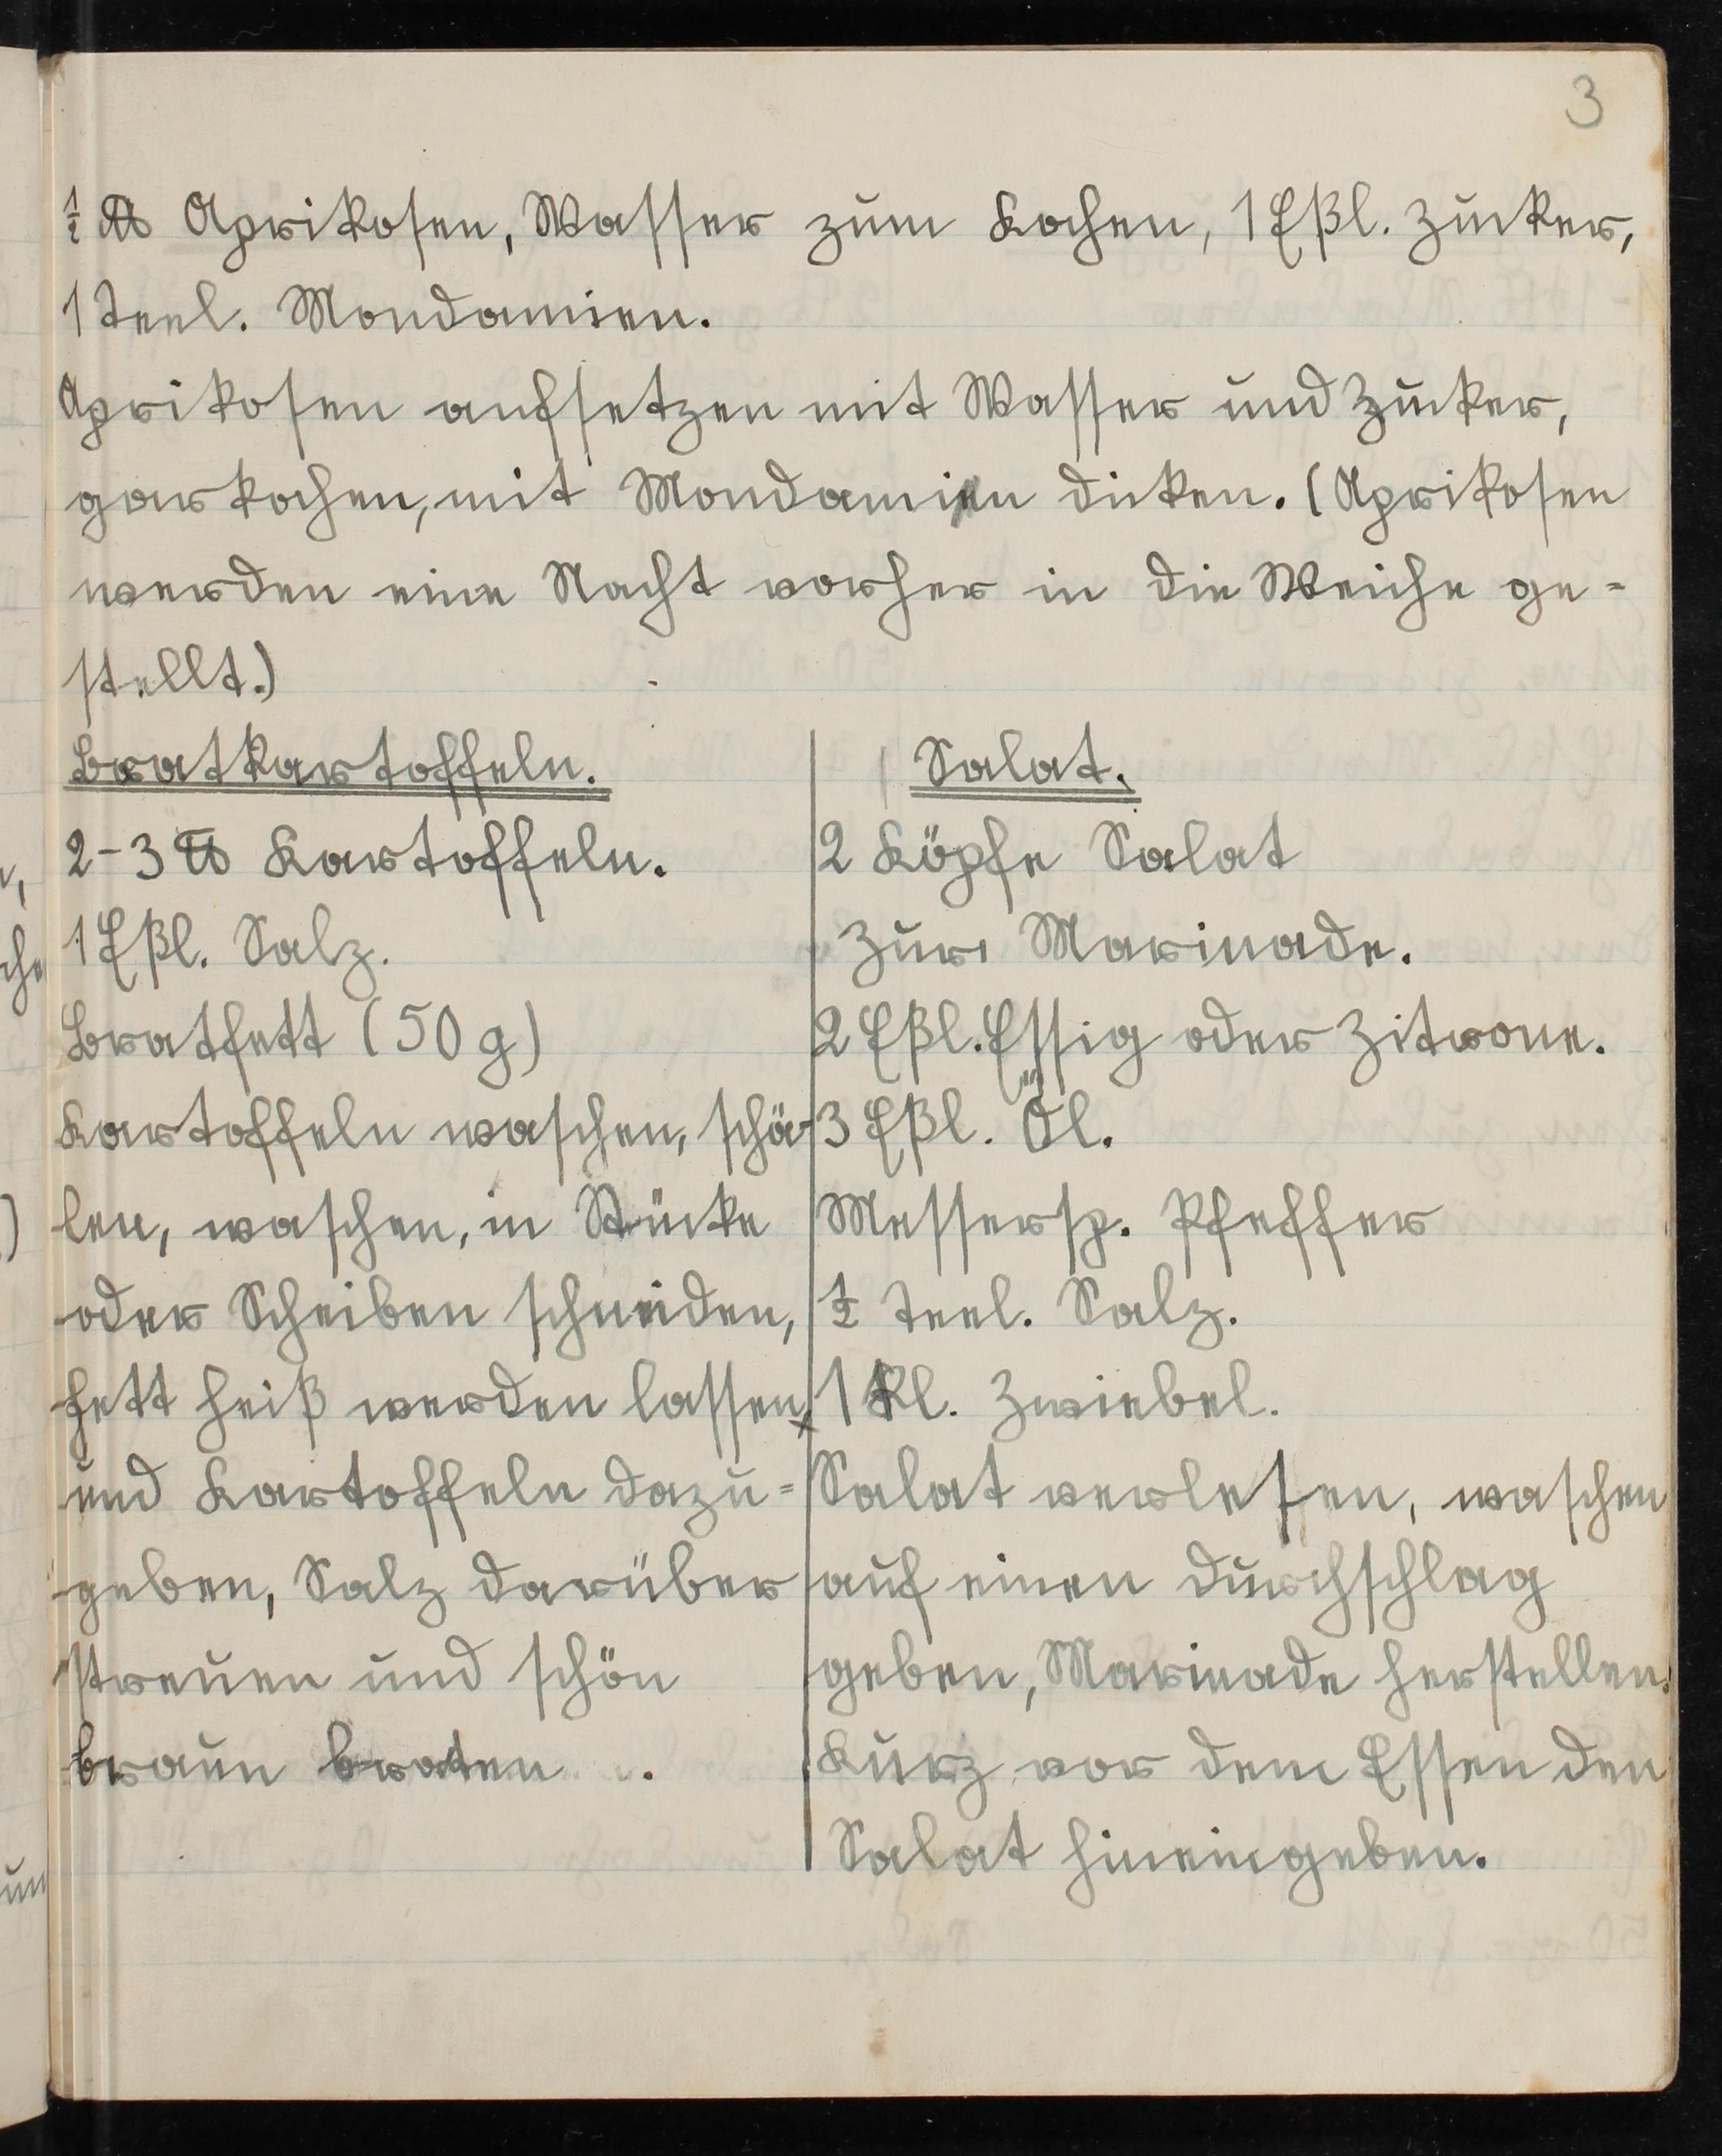 3
½ ℔ Aprikosen, Wasser zum Kochen, 1 Eßl. Zucker,
1 Teel. Mondamien.
Aprikosen aufsetzen mit Wasser und Zucker,
garkochen, mit Mondamin dicken. (Aprikosen
werden eine Nacht vorher in die Weiche ge=
stellt.)
Bratkartoffeln.
2-3 ℔ Kartoffeln.
1 Eßl. Salz.
Bratfett (50 g)
Kartoffeln waschen, schä-
len, waschen, in Stücke
oder Scheiben schneiden,
Fett heiß werden lassen,
und Kartoffeln dazu=
geben, Salz darüber
streuen und schön
braun braten.
Salat.
2 Köpfe Salat
Zur Marinade.
2 Eßl. Essig oder Zitrone.
3 Eßl. Öl.
Messersp. Pfeffer
½ Teel. Salz.
1 Kl. Zwiebel.
Salat verlesen, waschen
auf einen Durchschlag
geben, Marinade herstellen.
Kurz vor dem Essen den
Salat hineingeben.